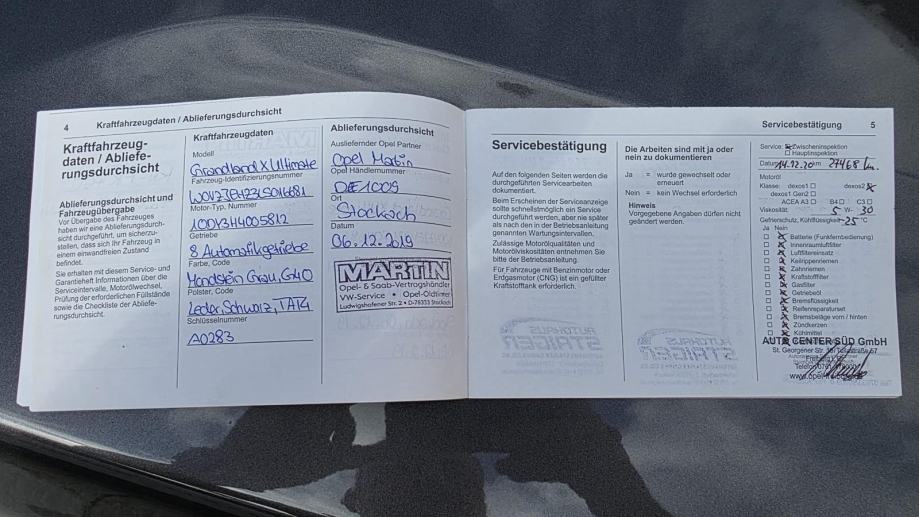 4 Kraftfahrzeugdaten / Ablieferungsdurchsicht
Kraftfahrzeug-
daten / Abliefe-
rungsdurchsicht
Ablieferungsdurchsicht und
Fahrzeugübergabe
Vor Übergabe des Fahrzeuges
haben wir eine Ablieferungsdurch-
sicht durchgeführt, um sicherzu-
stellen, dass sich Ihr Fahrzeug in
einem einwandfreien Zustand
befindet.
Sie erhalten mit diesem Service- und
Garantieheft Informationen über die
Serviceintervalle, Motorölwechsel,
Prüfung der erforderlichen Füllstände
sowie die Checkliste der Abliefe-
rungsdurchsicht.
Kraftfahrzeugdaten
Modell
Grandland X Ultimate
Fahrzeug-Identifizierungsnummer
Motor-Typ, Nummer
10DYJH4005812
Getriebe
8 Automatikgetriebe
Farbe, Code
Mondstein Grau, G40
Polster, Code
Leder, Schwarz, TA14
Schlüsselnummer
A0283
Ablieferungsdurchsicht
Ausliefernder Opel Partner
Opel Martin
Opel Händlernummer
DE1009
Ort
Stockach
Datum
06.12.2019
MARTIN
Opel- & Saab-Vertragshändler
VW-Service • Opel-Oldtimer
Ludwigshafener Str. 2 • D-78333 Stockach
Servicebestätigung 5
Servicebestätigung
Auf den folgenden Seiten werden die
durchgeführten Servicearbeiten
dokumentiert.
Beim Erscheinen der Serviceanzeige
sollte schnellstmöglich ein Service
durchgeführt werden, aber nie später
als nach den in der Betriebsanleitung
genannten Wartungsintervallen.
Zulässige Motorölqualitäten und
Motorölviskositäten entnehmen Sie
bitte der Betriebsanleitung.
Für Fahrzeuge mit Benzinmotor oder
Erdgasmotor (CNG) ist ein gefüllter
Kraftstofftank erforderlich.
Die Arbeiten sind mit ja oder
nein zu dokumentieren
Ja = wurde gewechselt oder
erneuert
Nein = kein Wechsel erforderlich
Hinweis
Vorgegebene Angaben dürfen nicht
geändert werden.
Service: Zwischeninspektion
Hauptinspektion
Datum 14.12.20 km 27468 km
Motoröl
Klasse: dexos1 dexos2
dexos1 Gen2
ACEA A3 B4 C3
Viskosität: 5 W- 30
Gefrierschutz, Kühlflüssigkeit -25 °C
Ja Nein
Batterie (Funkfernbedienung)
Innenraumluftfilter
Luftfiltereinsatz
Keilrippenriemen
Zahnriemen
Kraftstofffilter
Gasfilter
Getriebeöl
Bremsflüssigkeit
Reifenreparaturset
Bremsbeläge vorn / hinten
Zündkerzen
Kühlmittel
AUTO CENTER SÜD GmbH
St. Georgener Str.
AUTOHAUS
STRIGER
AUTOHAUS
STRIGER